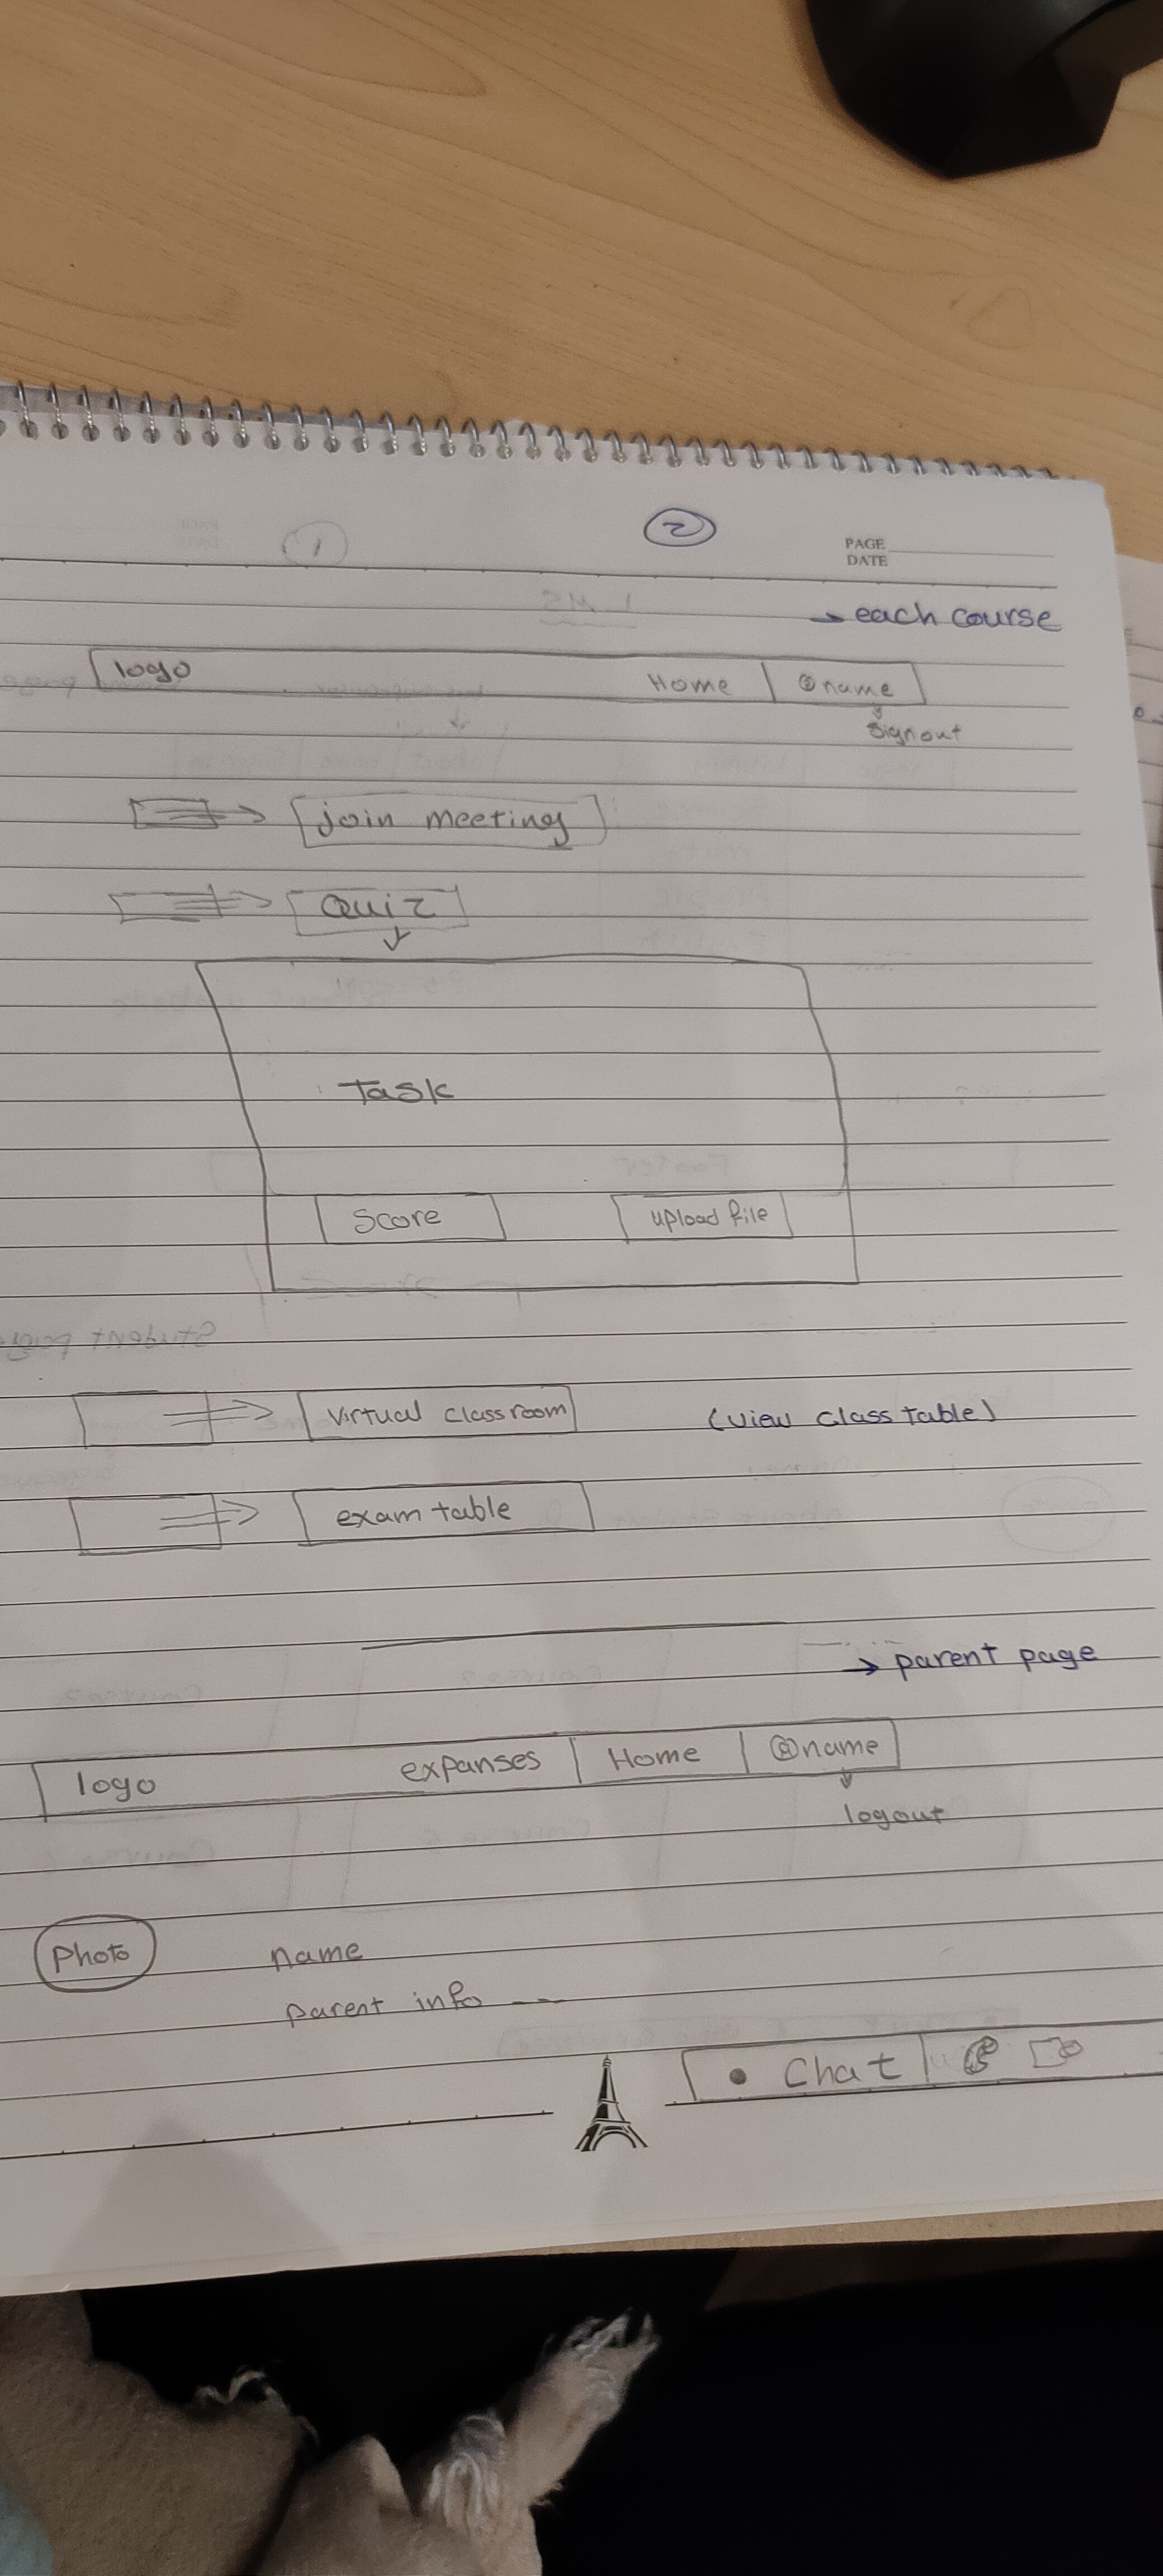 1
2
PAGE
DATE
→ each course
logo Home @name
signout
join meeting
Quiz
Task
Score upload file
virtual classroom (view class table)
exam table
→ parent page
logo expanses Home @name
logout
photo name
parent info
Chat